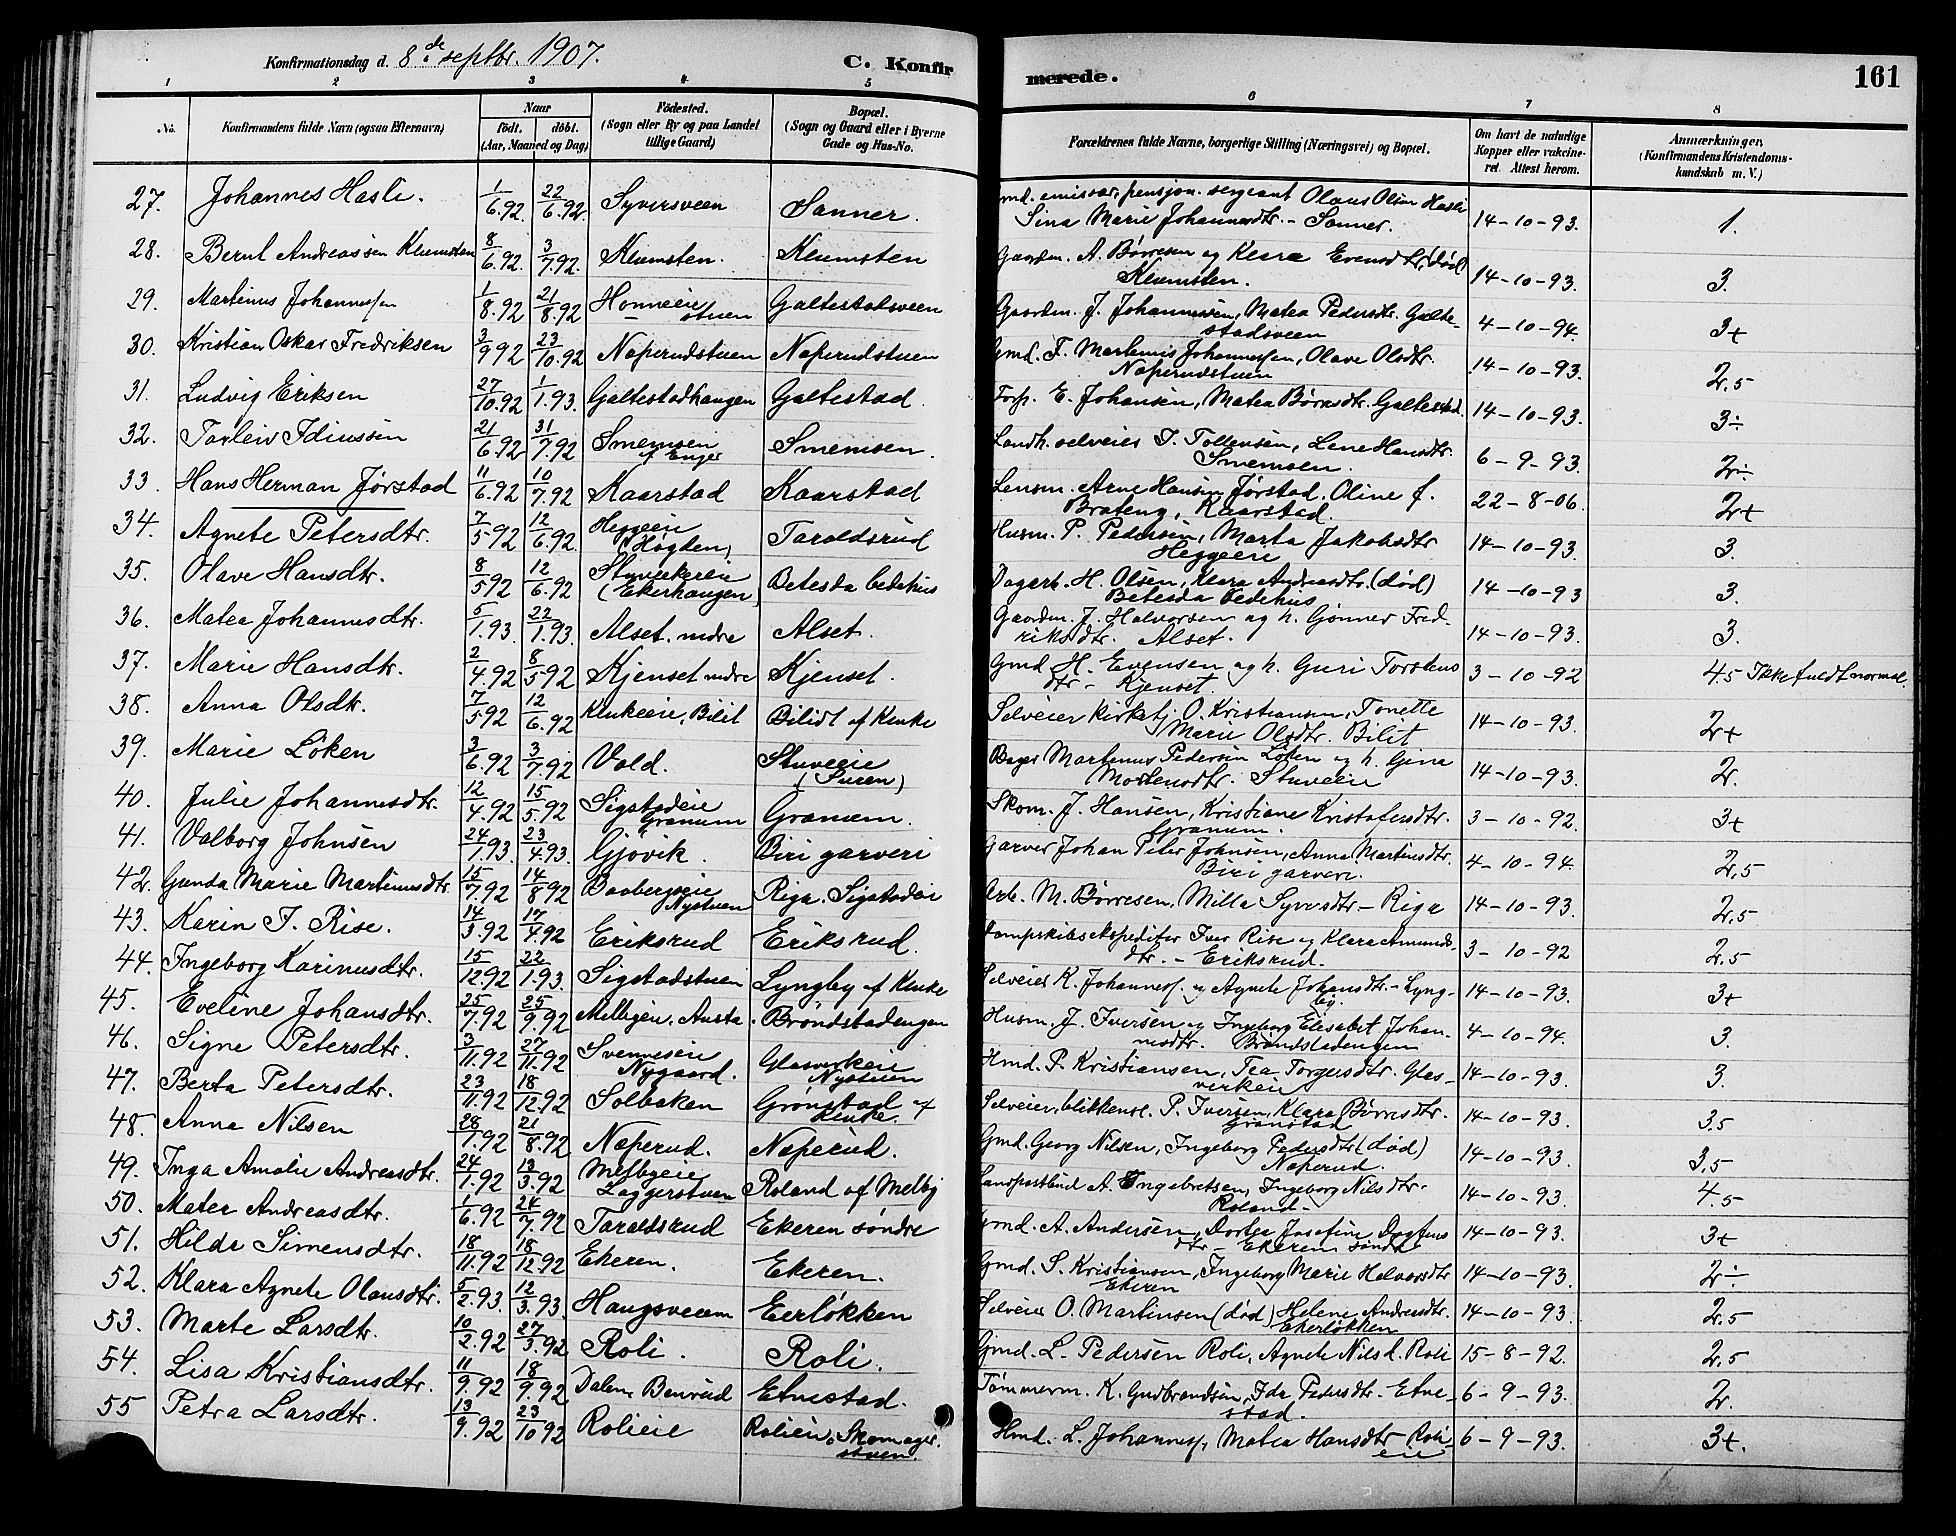 Konfirmationsdag d. 8de septbr. 1907.
C. Konfirmerede.
161
1 2 3 4 5 6 7 8
No.
Konfirmandens fulde Navn (ogsaa Efternavn)
Naar
født. døbt.
(Aar, Maaned og Dag)
Fødested.
(Sogn eller By og paa Landet
tillige Gaard)
Bopæl.
(Sogn og Gaard eller i Byerne
Gade og Hus-No.
Forældrenes fulde Navne, borgerlige Stilling (Næringsvei) og Bopæl.
Om havt de naturlige
Kopper eller vakcine-
ret. Attest herom.
Anmærkninger,
(Konfirmandens Kristendoms-
kundskab m. V.)
27. Johannes Hasli. 1/6.92 22/6.92. Syversveen Sanner. Gmd. emissær, pensjon. sergeant Olaus Olsen Hasli
Sina Marie Johannesdtr. - Sanner. 14-10-93. 1.
28. Bernt Andreassen Klumsten 8/6.92. 3/7.92. Klumsten. Klumsten Gaardm. A. Børresen og Klara Evensdtr. (død)
Klumsten. 14-10-93. 3.
29. Martinus Johannessen 1/8.92 21/8.92 Honneeie stuen Galtestadsveen Gaardm. J. Johannessen, Matea Pedersdtr. Galte-
stadsveen 4-10-94. 3+
30. Kristian Oskar Fredriksen 3/9 92 23/10.92 Næperudstuen Næperudstuen Gmd. F. Martinius Johannessen, Olave Olsdtr.
Næperudstuen 14-10-93. 2,5
31. Ludvig Eriksen 27/10.92 1/1.93. Galtestadhaugen Galtestad. Forp. E. Johansen, Matea Børresdtr. Galtestad. 14-10-93. 3÷
32. Torleiv Idiussen 21/6.92 31/7.92 Smemsen af Enger Smemsen. Landh. selveier I. Tollevsen, Lene Hansdtr.
Smemsen. 6-9-93. 2÷
33. Hans Herman Jørstad 11/6.92 10/7.92 Kaarstad Kaarstad Lensm. Arne Hansen Jørstad. Oline f.
Brateng, Kaarstad. 22-8-06. 2+
34. Agnete Petersdtr. 7/5 92 12/6.92. Heggeeie (Høgden) Taroldsrud Husm. P. Pedersen, Marta Jakobsdtr
Heggeeie 14-10-93. 3.
35. Olave Hansdtr. 8/5 92 12/6.92 Stuveekereie (Ekerhaugen) Betesda bedehus Dagarb. H. Olsen, Klara Andreasdtr. (død)
Betesda bedehus 14-10-93 3.
36. Matea Johannesdtr. 5/1.93. 22/1.93. Alset. nedre Alset. Gaardm. J. Halvorsen og h. Gønner Fred-
riksdtr. Alset. 14-10-93. 3.
37. Marie Hansdtr. 2/4.92 8/5 92 Kjenset nedre Kjenset. Gmd. H. Evensen og h. Guri Torstens
dtr - Kjenset. 3-10-92 4.5 Ikke fuldt normal.
38. Anna Olsdtr. 7/5 92 12/6.92 Klukeeie, Bilit Bilidt af Kluke Selveier kirketj. O. Kristiansen, Tonette
Marie Olsdtr. Bilit 14-10-93. 2+
39. Marie Løken 3/6.92 3/7.92 Vold. Stuveeie (Suren) Bager Martenus Pedersen Løken og h. Gina
Mortensdtr. Stuveeie 14-10-93. 2.
40. Julie Johannesdtr. 12/4.92 15/5.92 Sigstadeie Granum Granum. Skom. J. Hansen, Kristiane Kristofersdtr.
Granum. 3-10-92. 3+
41. Valborg Johnsen 24/1.93. 23/4.93. Gjøvik. Biri garveri Garver Johan Peter Johnsen, Anna Martinsdtr.
Biri garveri. 4-10-94. 2,5
42. Gunda Marie Martinusdtr 15/7.92 14/8 92 Baabergseie Nystuen Riga. Sigstadeie Arb. M. Børresen, Milla Syversdtr - Riga 14-10-93. 2,5
43. Karin I. Rise. 14/3.92 17/4.92 Eriksrud Eriksrud. Dampskibsekspeditør Iver Rise og Klara Amunds-
dtr. - Eriksrud. 3-10-92 2,5
44. Ingeborg Karinusdtr. 15/12.92 22/1.93. Sigstadstuen Lyngby af Kluke Selveier K. Johanness. og Agnete Johansdtr. - Lyng-
by. 14-10-93. 3+
45. Eveline Johansdtr. 25/7.92 25/9.92 Melbyeie. Austa. Brøndstadengen Husm. J. Iversen og Ingeborg Elisabet Johan-
nesdtr. Brøndstadengen 4-10-94. 3.
46. Signe Petersdtr. 3/11.92 27/11.92 Svenneseie Nygaard. Glasverkeie Nystuen Hmd. P. Kristiansen, Tea Torgersdtr. Glas-
verkeie 14-10-93. 3.
47. Berta Petersdtr. 23/11.92 18/12.92 Solbaken Grønstad af Kluke. Selveier, blikkensl. P. Iversen, Klara Børresdtr.
Grønstad 14-10-93. 3.5
48. Anna Nilsen 28/7.92 21/8.92 Næperud. Næperud. Gmd. Georg Nilsen, Ingeborg Pedersdtr (død)
Næperud. 14-10-93. 3,5
49. Inga Amalie Andreasdtr. 24/1.92 13/3.92 Melbyeie Laggerstuen Roland af Melby Landpostbud A. Engebretsen, Ingeborg Nilsdtr.
Roland - 14-10-93. 4.5
50. Matea Andreasdtr. 1/6.92 24/7.92 Taroldsrud Ekeren søndre Gmd. A. Andersen, Dortea Josefine Dagfins
dtr - Ekeren søndre 14-10-93. 3+
51. Hilda Simensdtr. 18/11.92 18/12 92 Ekeren. Ekeren. Gmd. S. Kristiansen, Ingeborg Marie Halvorsdtr
Ekeren 14-10-93. 2÷
52. Klara Agnete Olausdtr. 5/2.93. 12/3.93. Haugsveen Eerløkken Selveier O. Martinsen (død) Helene Andreasdtr.
Ekerløkken 14-10-93. 2,5
53. Marte Larsdtr. 10/2.92 27/3.92 Roli. Roli. Gmd. L. Pedersen Roli, Agnete Nilsd. Roli 15-8-92. 2,5
54. Lisa Kristiansdtr. 11/9.92 18/9.92 Dalen, Benrud Etnestad. Tømmerm. K. Gudbrandsen, Ida Pedersdtr. Etne-
stad. 6-9-93. 2.
55 Petra Larsdtr. 13/9.92 23/10 92 Rolieie Rolieie, Skomager-
stuen. Hmd. L. Johanness, Matea Hansdtr - Roli-
eie 6-9-93. 3+.